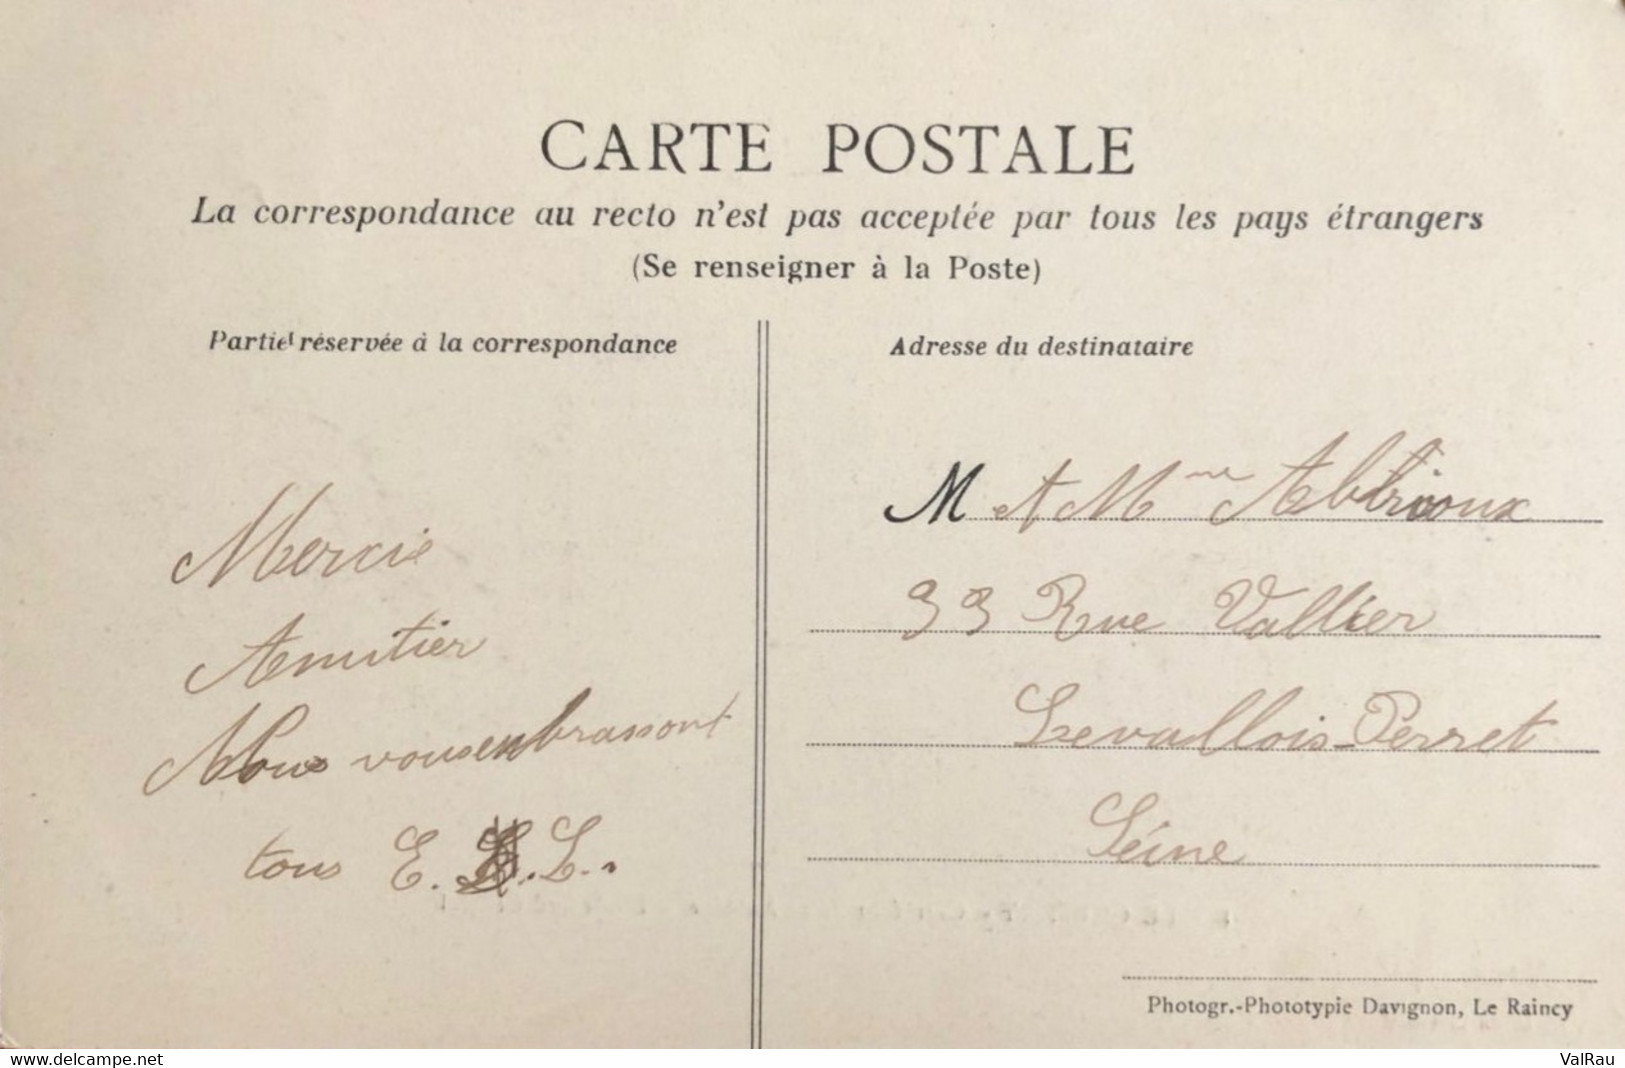 CARTE POSTALE
La correspondance au recto n'est pas acceptée par tous les pays étrangers
(Se renseigner à la Poste)
Partie réservée à la correspondance
Adresse du destinataire
Mercie
Amitier
Nous vous enbrassont
tous E. L.
M et Mme
33 Rue Vallier
Levallois-Perret
Séine
Photogr.-Phototypie Davignon, Le Raincy
www.delcampe.net
ValRau